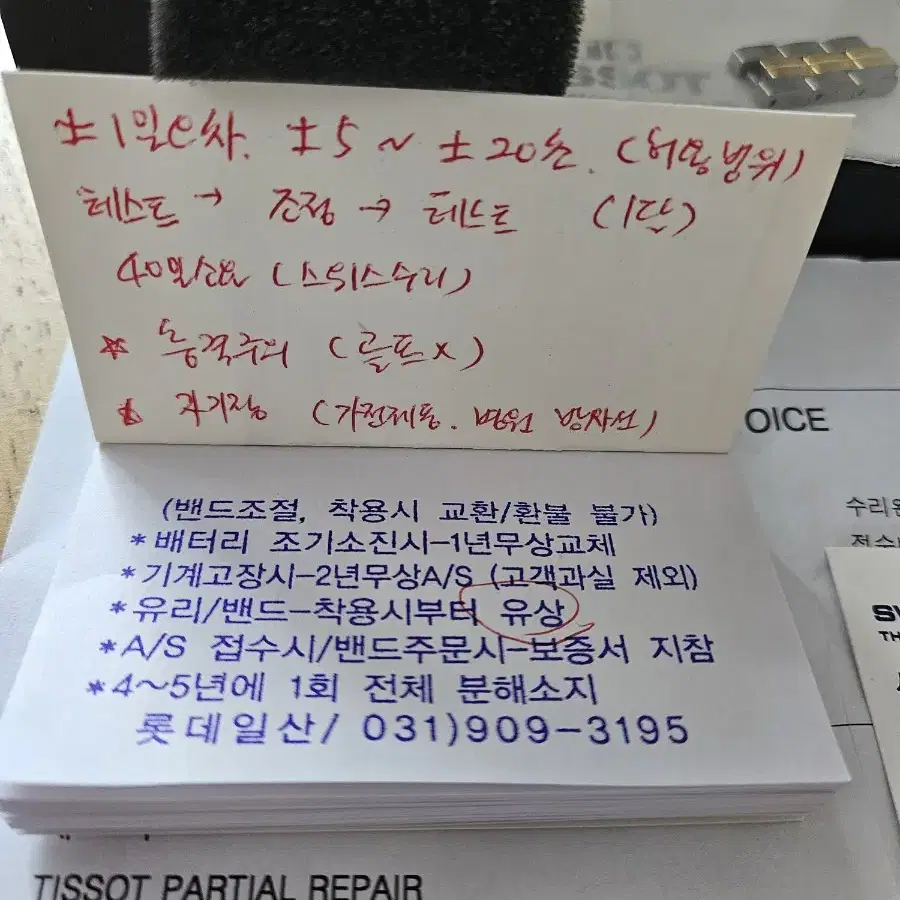 ±1일오차. ±5 ~ ±20초. (허용범위)
테스트 → 조정 → 테스트 (1달)
40일소요 (스위스수리)
* 충격주의 (골프x)
* 자기장 (가전제품. 병원 방사선)
OICE
(밴드조절, 착용시 교환/환불 불가)
*배터리 조기소진시-1년무상교체
*기계고장시-2년무상A/S (고객과실 제외)
*유리/밴드-착용시부터 유상
*A/S 접수시/밴드주문시-보증서 지참
*4~5년에 1회 전체 분해소지
롯데일산/ 031)909-3195
TISSOT PARTIAL REPAIR